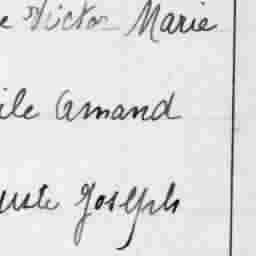 e Victor Marie
ile Amand
uste Joseph